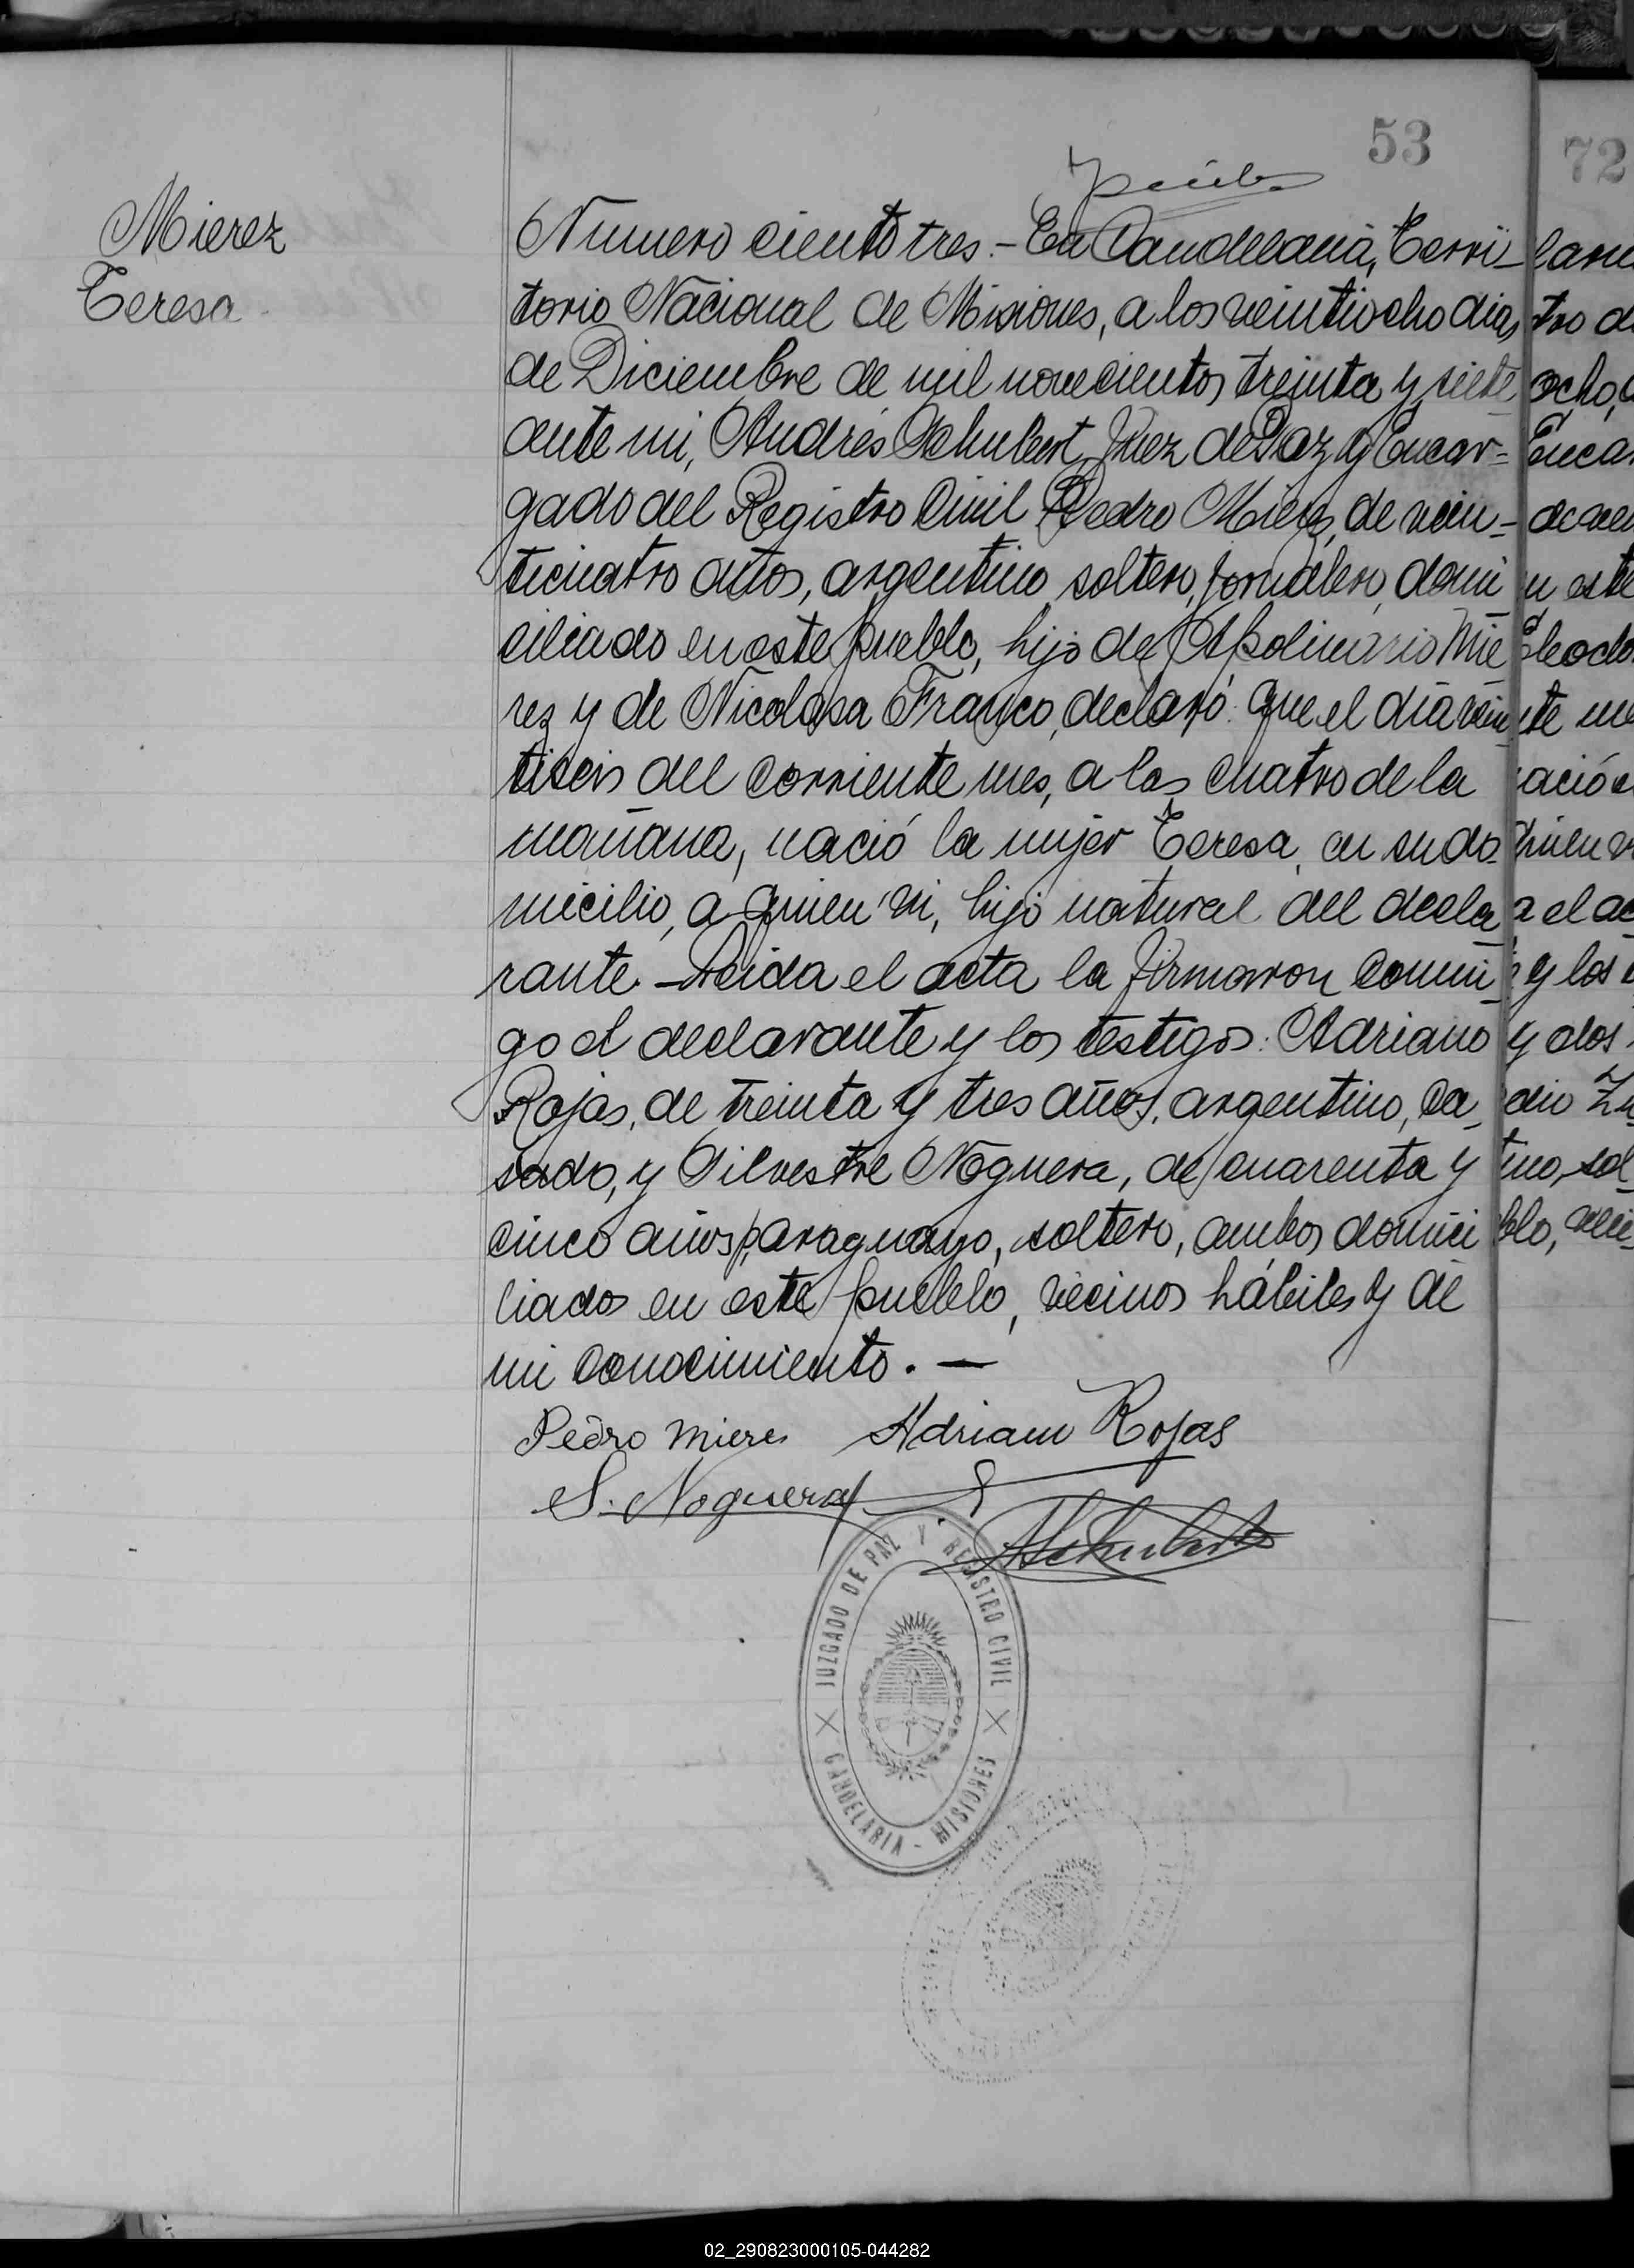 53
72
Mierez
Teresa
Numero ciento tres.- En Candelaria, Terri-
torio Nacional de Misiones, a los veintiocho dias
de Diciembre de mil novecientos treinta y siete
ante mi, Andrés Schubert, Juez de Paz y Encar=
gado del Registro Civil Pedro Mieres, de vein-
ticuatro años, argentino, soltero, jornalero, domi
ciliado en este pueblo, hijo de Apolinario Mie
rez y de Nicolasa Franco, declaró: que el día vein
tiseis del corriente mes, a las cuatro de la
mañana, nació la mujer Teresa, en su do-
micilio, a quien vi, hijo natural del decla
rante.- Leida el acta la firmaron conmi
go el declarante y los testigos: Adriano
Rojas, de treinta y tres años, argentino, ca-
sado, y Silvestre Noguera, de cuarenta y
cinco años, paraguayo, soltero, ambos domici
liados en este pueblo, vecinos hábiles y de
mi conocimiento.-
Pedro Mieres Adriano Rojas
S. Noguera
ASchubert
JUZGADO DE PAZ Y REGISTRO CIVIL
CANDELARIA - MISIONES
tro de
ocho,
n este
y los
y dos
02_290823000105-044282